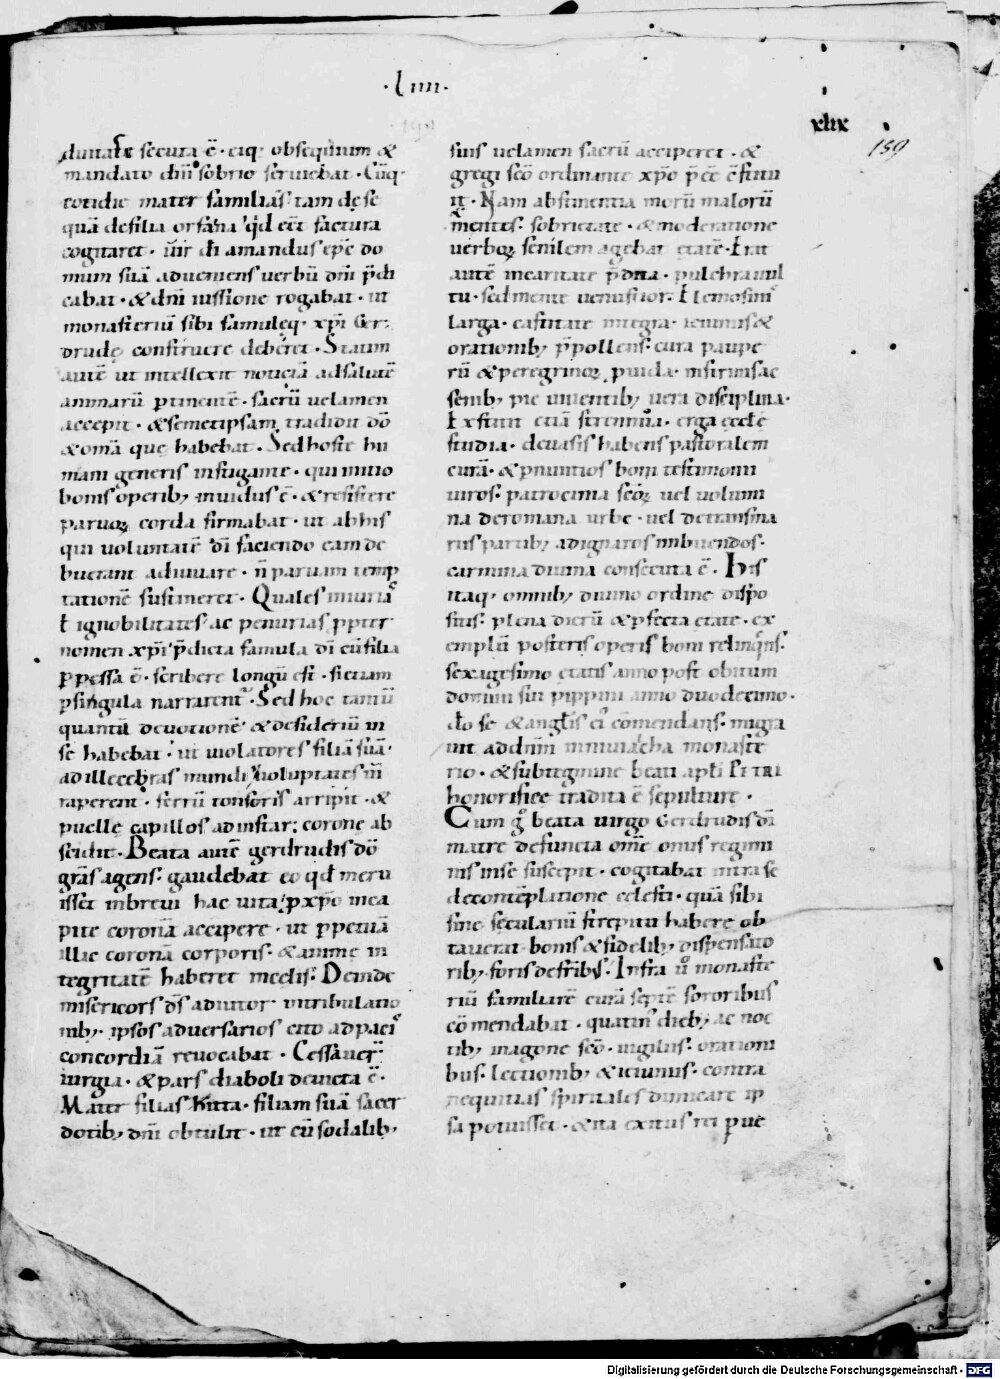 ·liiii·
xlix
159
duitatē secuta ē· eiq; obsequium &
mandato dn̄i sobrio seruiebat· Cūq·
cotidie mater familias tam de se
quā de filia orfana qd eēt factura
cogitaret· uir dī amandus ep̄c do
mum suā adueniens uerbū dn̄i p̄di
cabat· & dn̄i iussione rogabat· ut
monasteriū sibi famuleq· xp̄i Ger
drude construere deberet· Statim
autē ut intellexit noticiā ad salutē
animarū ꝑtinentē· sacrū uelamen
accepit· & semetipsam tradidit dō
& om̄a que habebat· Sed hoste hu
mani generis instigante· qui initio
bonis operib; inuidus ē· & resistere
prauoꝝ corda firmabat· ut ab his
qui uoluntatē dī faciendo eam de
buerant adiuuare· n̄ paruam temp
tationē sustineret· Quales iniurias
ł ignobilitates· ac penurias ꝓpter
nomen xp̄i p̄dicta famula dī cū filia
ꝑpessa ē· scribere longū est· si etiam
ꝑ singula narrarent᷑· Sed hoc tantū
quantū deuotionē & desideriū in
se habebat· ut uiolatores filiā suā
ad illecebras mundi uoluptates n̄
raperent· ferrū tonsoris arripit· &
puelle capillos ad instar corone ab
scidit· Beata autē gerdrudis dō
grās agens· gaudebat eo qd meru
isset in breui hac uita ꝓ xp̄o in ca
pite coronā accipere· ut ꝑpetuā
illic coronā corporis· & anime in
tegritatē haberet in celis· Deinde
misericors ds̄ adiutor in tribulatio
nib; ipsos aduersarios cito ad pacis
concordiā reuocabat· Cessauer̄
iurgia· & pars diaboli deuicta ē·
Mater filias Kitta· filiam suā sacer
dotib; dn̄i obtulit· ut cū sodalib;
suis uelamen sacrū acciperet· &
gregi scō ordinante xp̄o p̄eē ēstitu
it· Nam abstinentia morū malorū
mentis· sobrietate· & moderatione
uerboꝝ senilem agebat etatē· Erit
autē in caritate p̄dita· pulchra uul
tu· sed mente uenustior· Elemosinis
larga· castitate integra· ieiuniis &
orationib; p̄pollens· cura paupe
rū & peregrinoꝝ ꝓuida· infirmis ac
senib; pie uiuentib; uera disciplina·
Extitit etiā strennua· erga eccłe
studia· de uasis habens pastoralem
curā· & ꝑ nuntios boni testimonii
uiros· patrocinia scōꝝ uel uolumi
na de romana urbe· uel de transma
rinis partib; ad ignaros imbuendos·
carmina diuina consecuta ē· His
itaq; omnib; diuino ordine dispo
sitis· plena dierū & ꝑfecta etate· ex
emplū posteris operis boni relinqns·
sexagesimo etatis anno post obitum
domini sui pippini anno duodecimo·
dō se & angłis ei᷒ cōmendans· migra
uit ad dn̄m in niuiacha monaste
rio· & sub tegmine beati apłi Petri
honorifice tradita ē sepulture·
Cum g° beata uirgo Gerdrudis dī
matre defuncta om̄e onus regimi
nis in se suscepit· cogitabat intra se
de contēplatione celesti· quā sibi
sine seculariū strepitu habere ob
tauerat· bonis & fidelib; dispensato
rib; foris de frīb;· Infra u° monaste
riū familiarē curā septē sororibus
cōmendabat· quatin᷒ dieb; ac noc
tib; in agone scō· uigiliis· orationi
bus· lectionib; & ieiuniis· contra
nequitias spirituales dimicare ip
sa potuisset· & ita exitus rei ꝓue
Digitalisierung gefördert durch die Deutsche Forschungsgemeinschaft - DFG